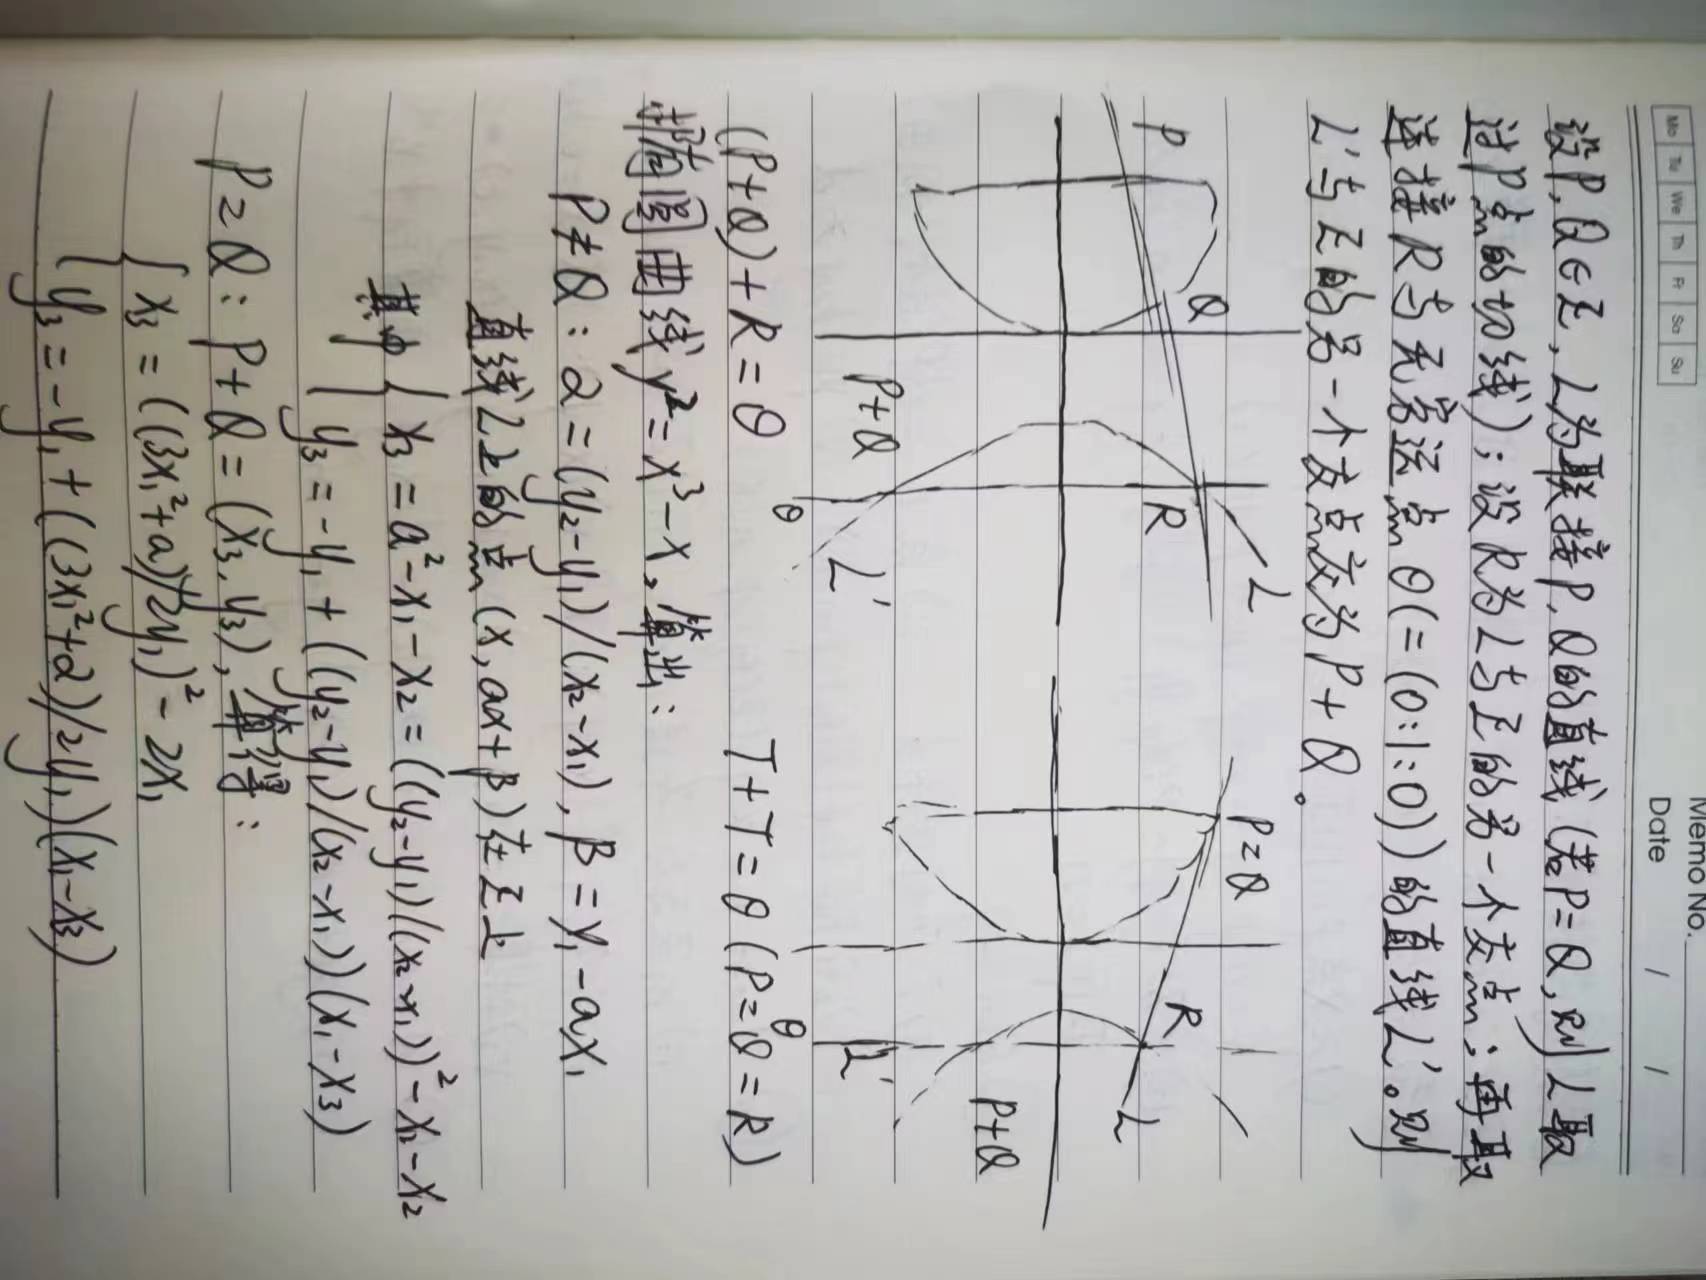 Memo No.
Mo Tu We Th Fr Sa Su
Date / /
设P,Q∈E,L为联接P,Q的直线(若P=Q,则L取
过P点的切线);设R为L与E的另一个交点;再取
连接R与无穷远点O(=(0:1:0))的直线L'。则
L'与E的另一个交点定为P+Q。
P Q R L
P+Q
O L'
P=Q R L
P+Q
O L'
(P+Q)+R=O T+T=O(P=Q=R)
椭圆曲线y²=x³-x,算出:
P≠Q:α=(y₂-y₁)/(x₂-x₁),β=y₁-αx₁
直线L上的点(x,αx+β)在E上
其中{x₃=α²-x₁-x₂=((y₂-y₁)/(x₂-x₁))²-x₁-x₂
y₃=-y₁+((y₂-y₁)/(x₂-x₁))(x₁-x₃)
P=Q:P+Q=(x₃,y₃),算得:
{x₃=((3x₁²+a)/2y₁)²-2x₁
y₃=-y₁+((3x₁²+a)/2y₁)(x₁-x₃)